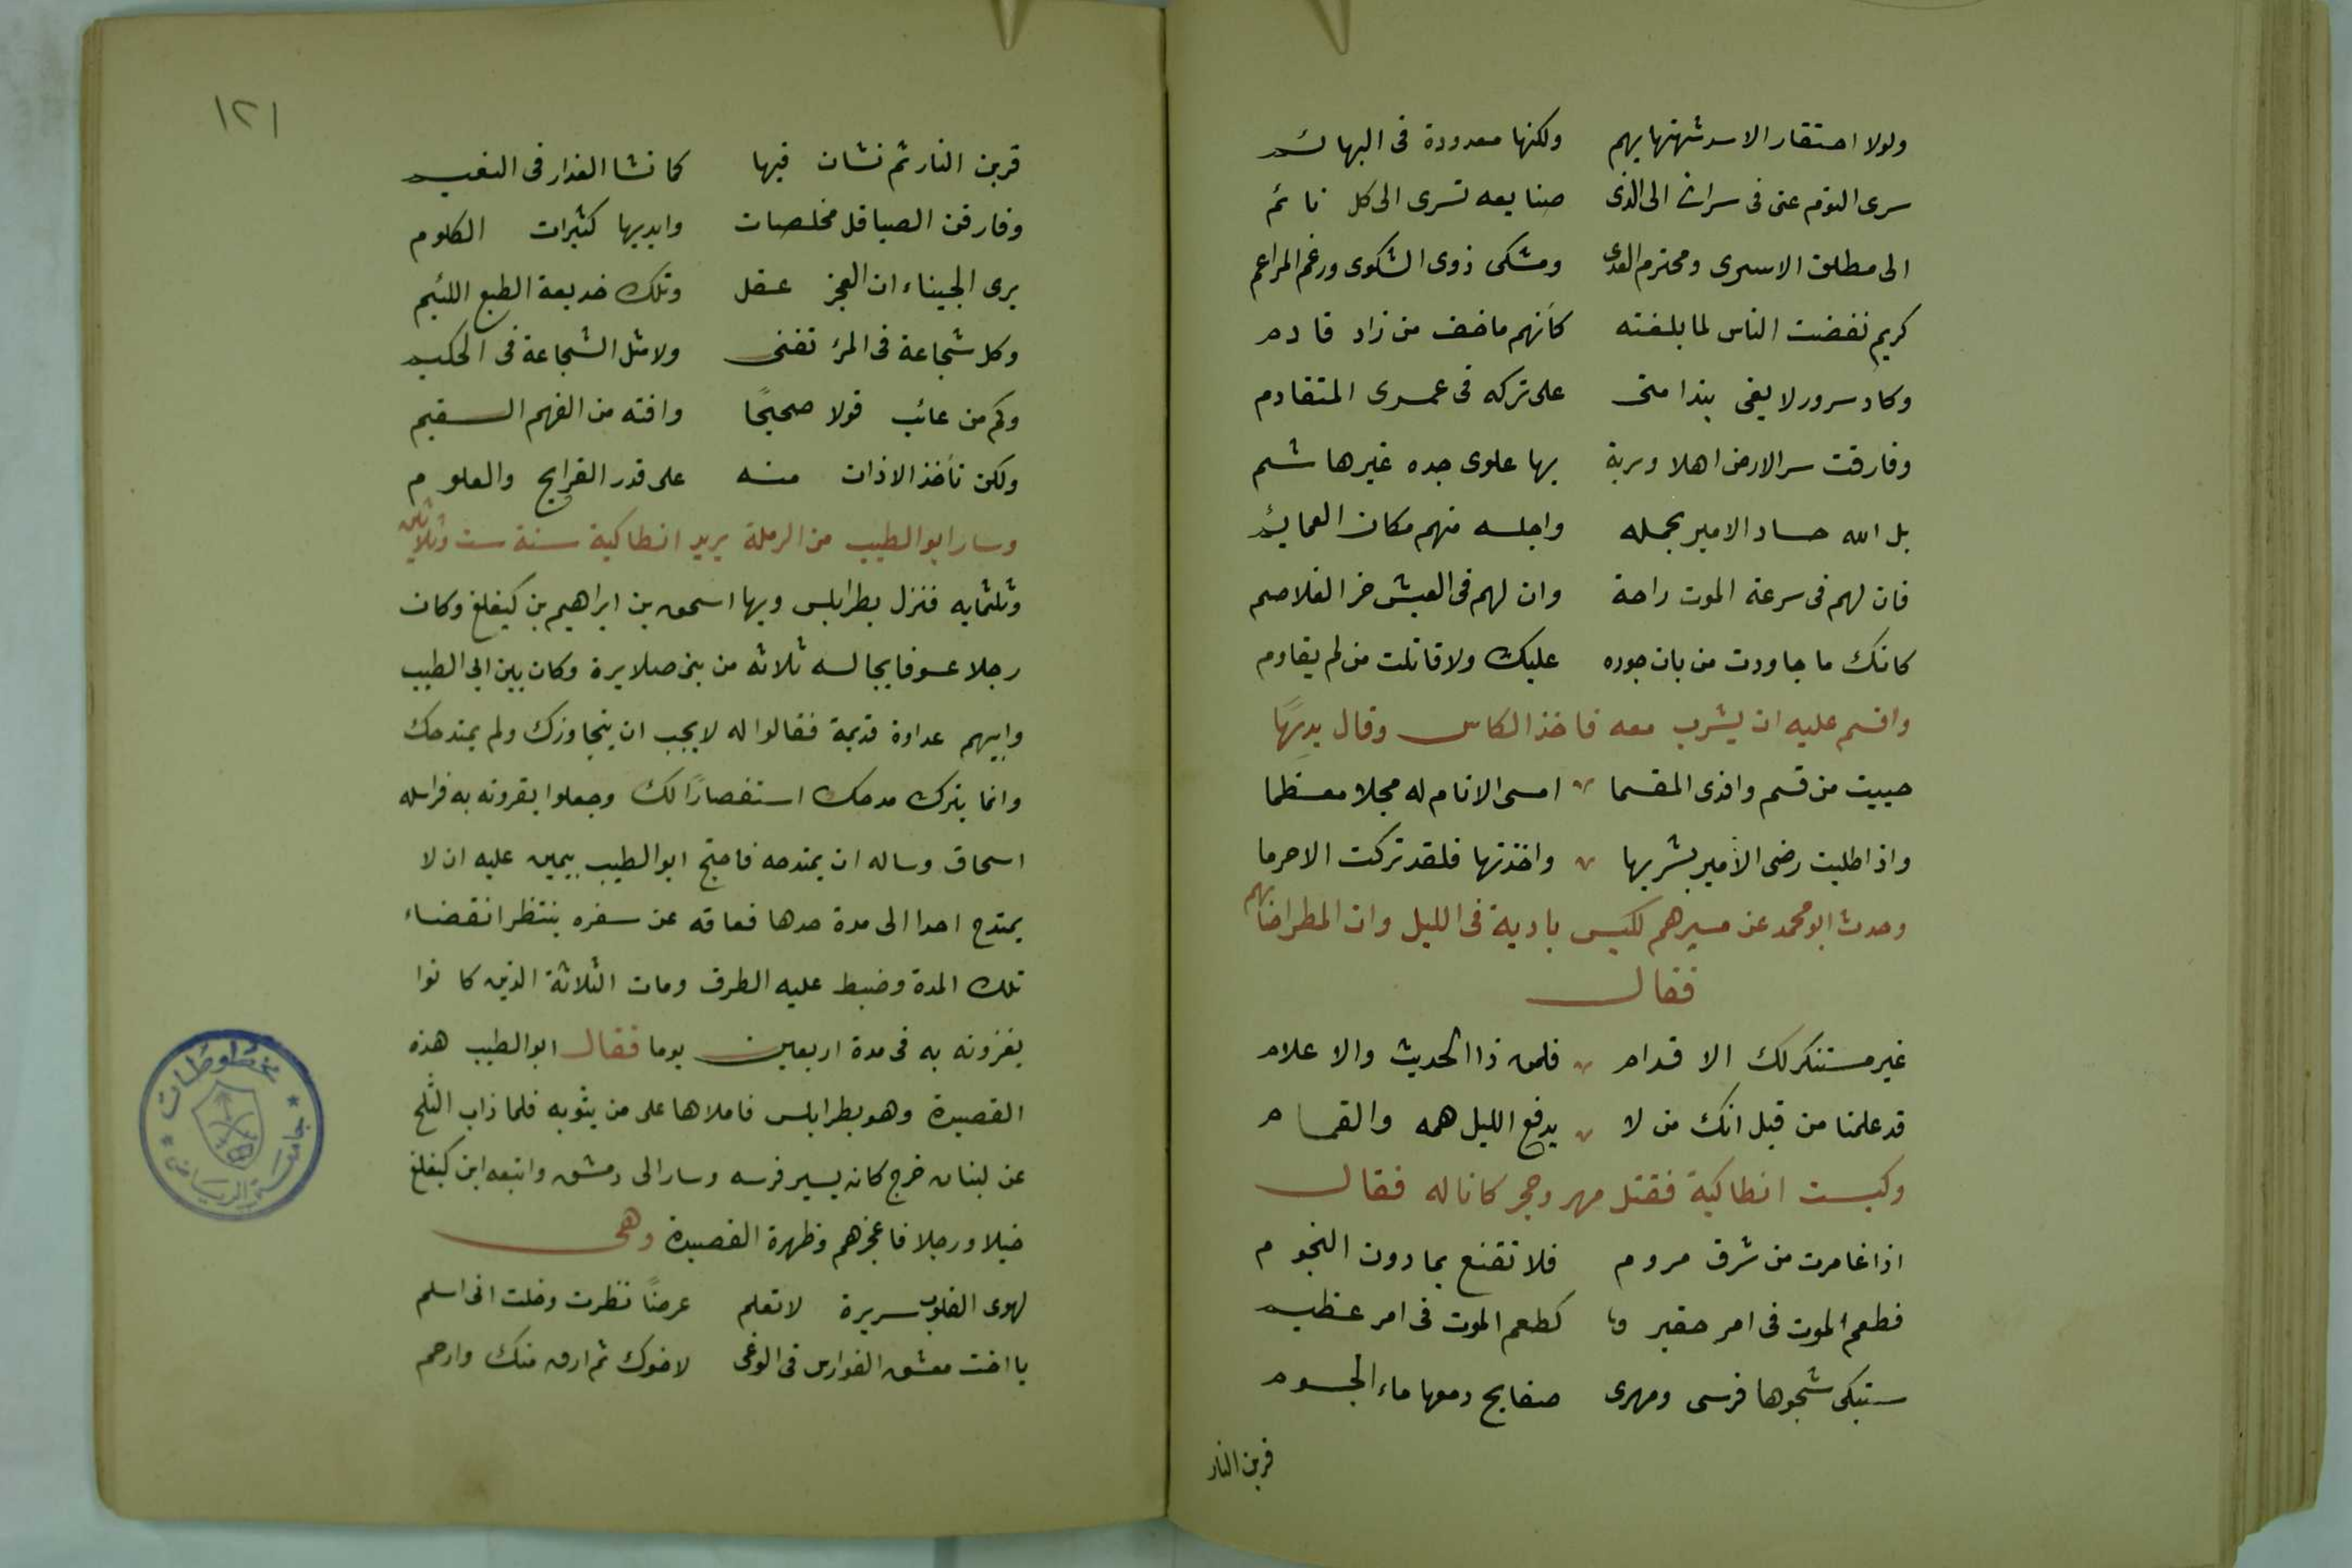 ولولا احتقار الاسد شبهتها بهم ولكنها معدودة فى البهائم
سرى النوم عنى فى سراى الى الذى صنايعه تسرى الى كل نائم
الى مطلق الاسرى ومخترم العدى ومشكى ذوى الشكوى ورغم المراغم
كريم نفضت الناس لما بلغته كأنهم ما خف من زاد قادم
وكاد سرور لا يفى بندامتى على تركه فى عمرى المتقادم
وفارقت سر الارض اهلا وتربة بها علوى جده غير هاشم
بل الله حساد الامير بحمله واجلسه منهم مكان العمايم
فان لهم فى سرعة الموت راحة وان لهم فى العيش حز الغلاصم
كانك ما جاودت من بان جوده عليك ولا قاتلت من لم يقاوم
واقسم عليه ان يشرب معه فاخذ الكاس وقال بديهًا
حييت من قسم وافدى المقسما امسى الانام له مجلا معظما
واذا طلبت رضى الأمير بشربها واخذتها فلقد تركت الاحرما
وحدث ابو محمد عن مسيرهم لكبس بادية فى الليل وان المطر اصابهم
فقال
غير مستنكر لك الاقدام فلمن ذا الحديث والاعلام
قد علمنا من قبل انك من لا يدفع الليل همه والغمام
وكبست انطاكية فقتل مهر وحجر كانا له فقال
اذا غامرت من شرف مروم فلا تقنع بما دون النجوم
فطعم الموت فى امر حقير كطعم الموت فى امر عظيم
ستبكى شجوها فرسى ومهرى صفايح دمعها ماء الجسوم
قربن النار
١٢١
قربن النار ثم نشان فيها كما نشا العذار فى النعيم
وفارقن الصياقل مخلصات وايديها كثيرات الكلوم
يرى الجبناء ان العجز عقل وتلك خديعة الطبع اللئيم
وكل شجاعة فى المرء تغنى ولا مثل الشجاعة فى الحكيم
وكم من عائب قولا صحيحًا وافته من الفهم السقيم
ولكن تأخذ الاذان منه على قدر القرايح والعلوم
وسار ابو الطيب من الرملة يريد انطاكية سنة ست وثلاثين
وثلثمايه فنزل بطرابلس وبها اسحق بن ابراهيم بن كيغلغ وكان
رجلا عسوفا يجالسه ثلاثه من بنى صلايرة وكان بين ابى الطيب
وابيهم عداوة قديمة فقالوا له لا يجب ان يتجاوزك ولم يمتدحك
وانما يترك مدحك استغصارًا لك وجعلوا يغرونه به فراسله
اسحاق وساله ان يمتدحه فاحتج ابو الطيب بيمين عليه ان لا
يمتدح احدا الى مدة حدها فعاقه عن سفره ينتظر انقضاء
تلك المدة وضبط عليه الطرق ومات الثلاثة الذين كانوا
يغرونه به فى مدة اربعين يوما فقال ابو الطيب هذه
القصيدة وهو بطرابلس فاملاها على من يثق به فلما ذاب الثلج
عن لبنان خرج كانه يسير فرسه وسار الى دمشق واتبعه ابن كيغلغ
خيلا ورجلا فاعجزهم وظهرة القصيدة وهى
لهوى القلوب سريرة لا تعلم عرضًا نظرت وخلت انى اسلم
يا اخت معتنق الفوارس فى الوغى لاخوك ثم ارق منك وارحم
جامعة الرياض
مخطوطات